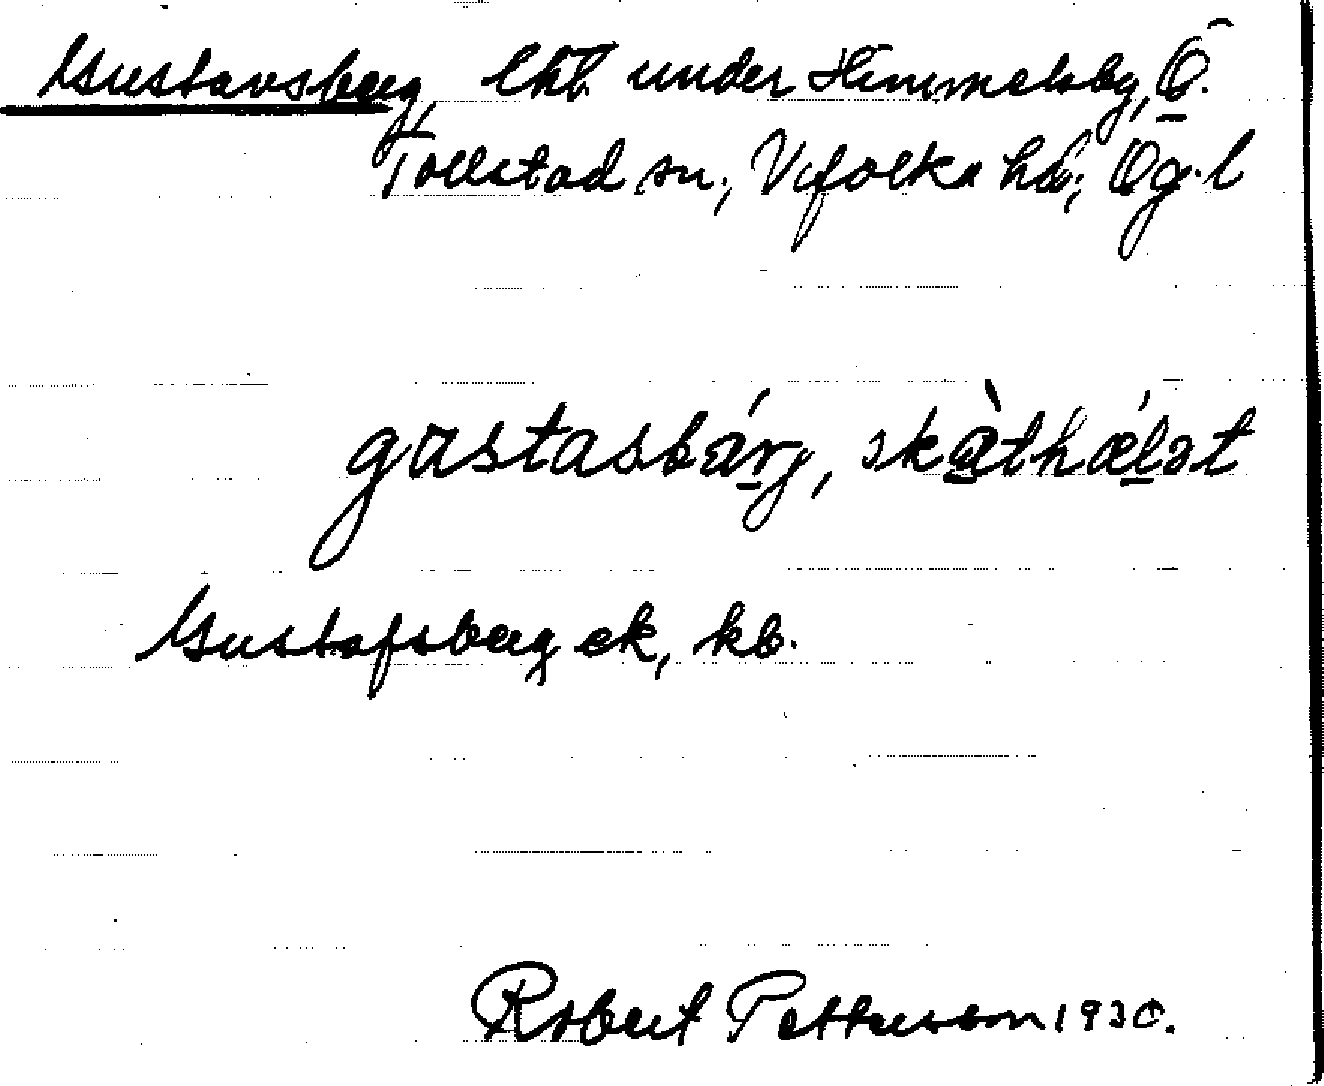 Gustavsberg, lht. under Himmelsby, Ö.
Tollstad sn., Vifolka hd., Ög. l
gustasbárj, skàthælət
Gustafsberg ek, kb.
Robert Pettersson 1930.